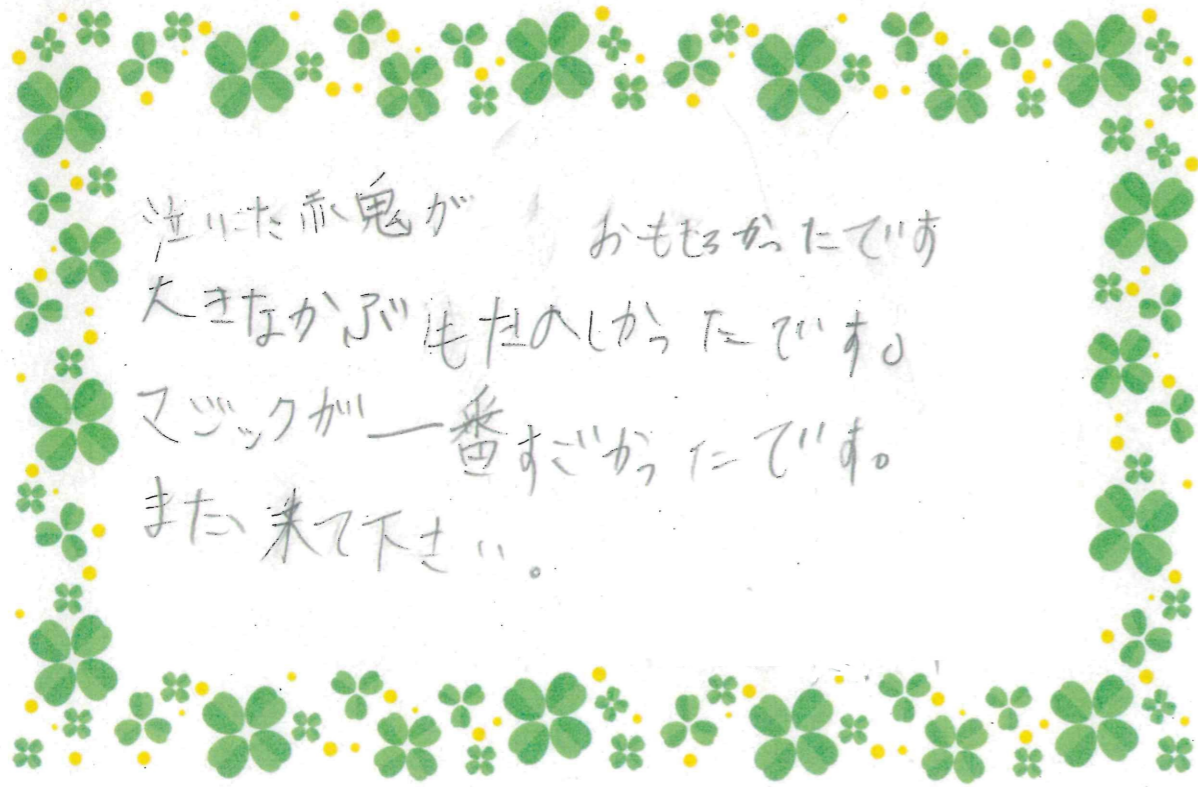 泣いた赤鬼が おももろかったです
大きなかぶもたのしかったです。
マジックが一番すごかったです。
また来て下さい。